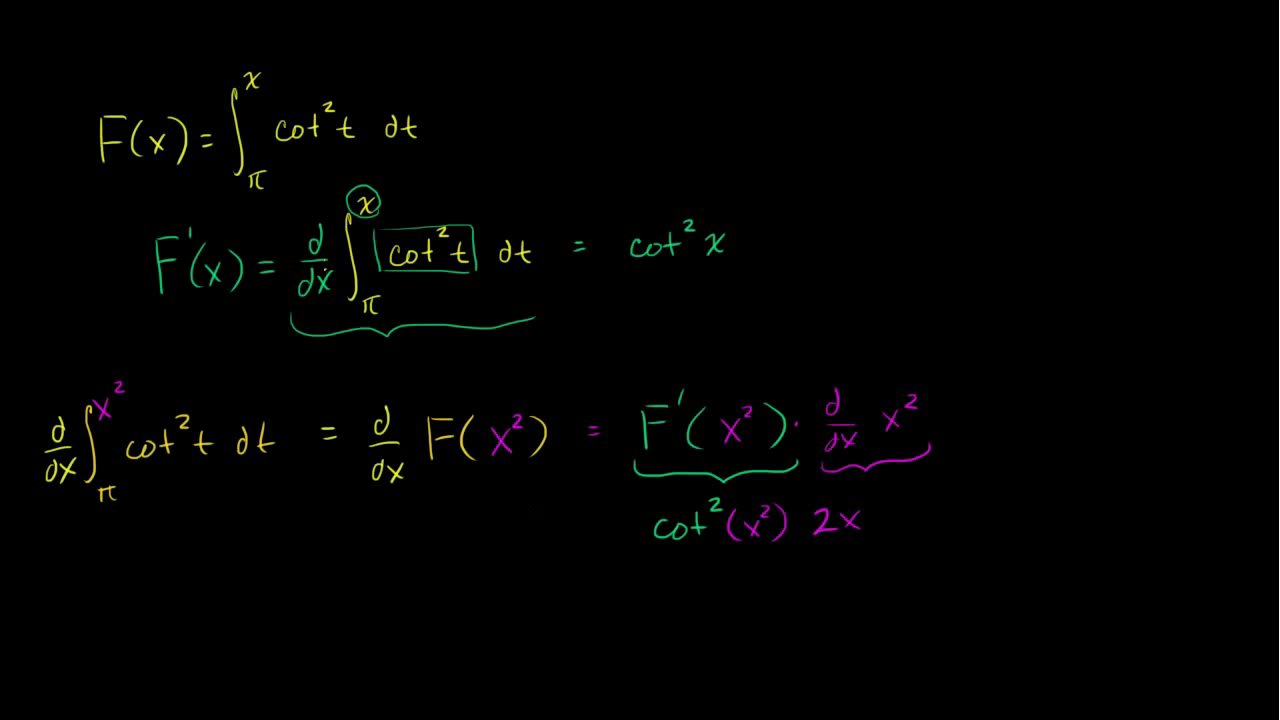 F(x) = ∫_π^x cot² t dt
F'(x) = d/dx ∫_π^x cot² t dt = cot² x
d/dx ∫_π^{x²} cot² t dt = d/dx F(x²) = F'(x²) · d/dx x²
cot²(x²) 2x